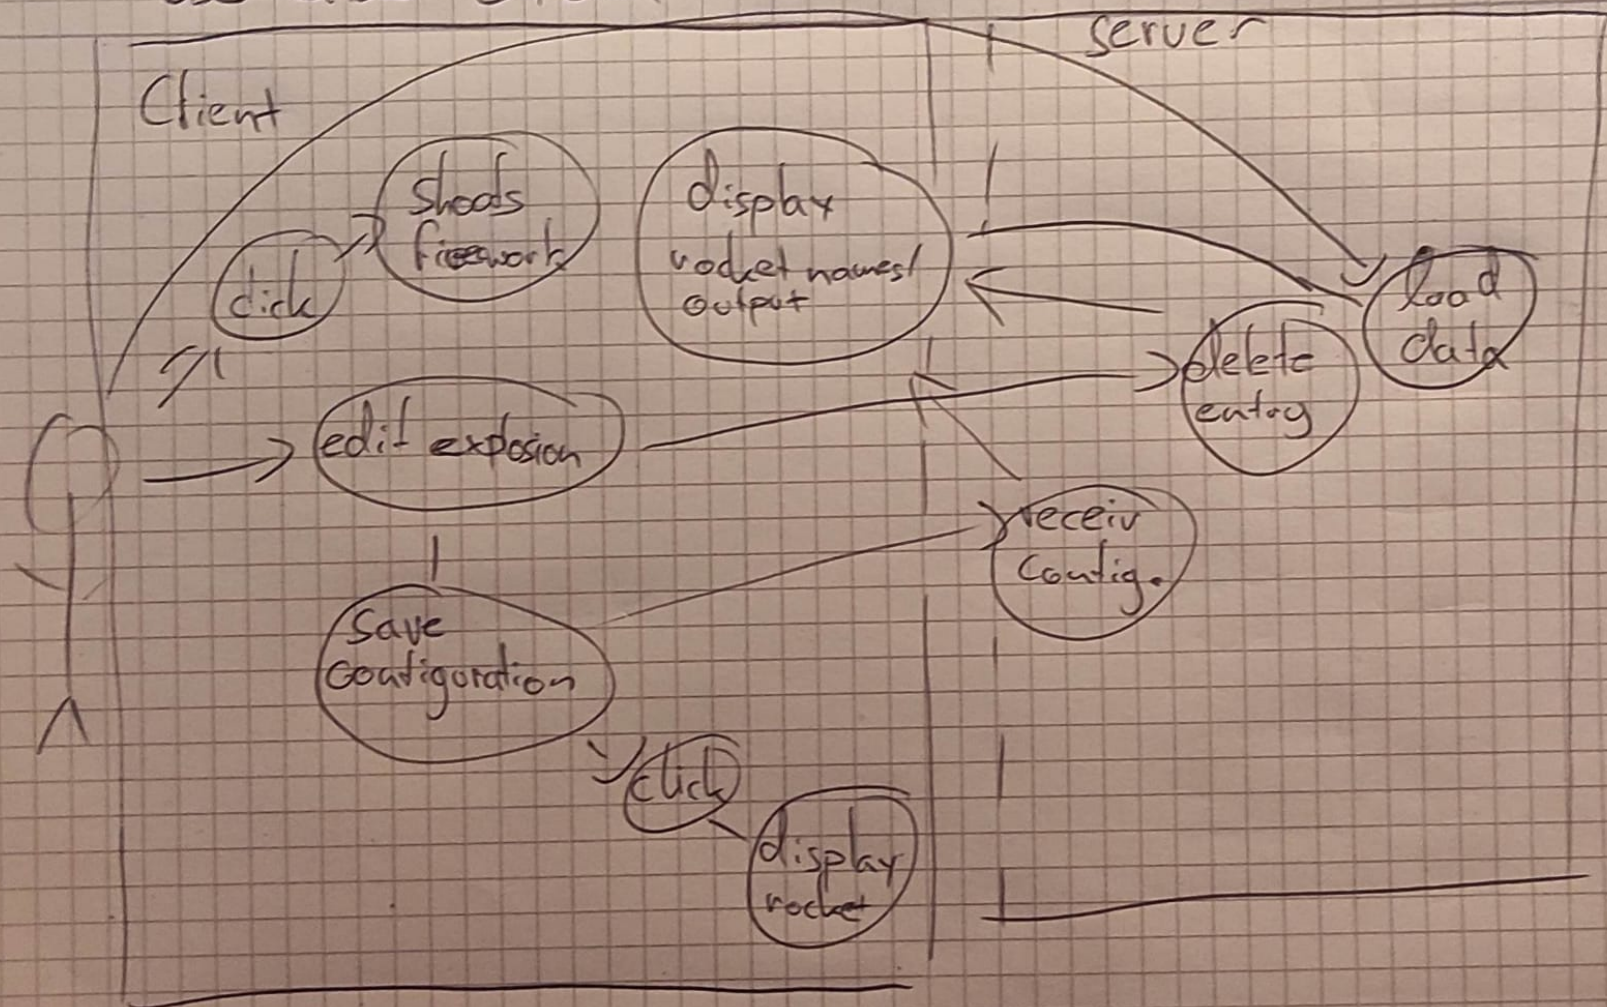 Client
server
shoods
firework
click
display
rocket names/
output
load
data
delete
entry
edit exposion
receiv
Config.
Save
Configoration
click
display
rocket